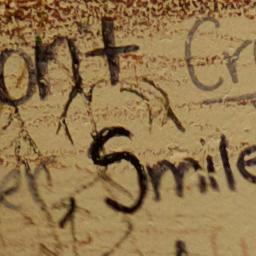 ont Cr
er, Smile